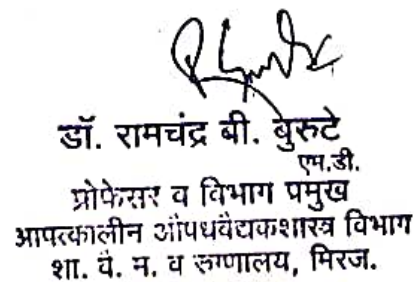 डॉ. रामचंद्र बी. बुरुटे
एम.डी.
प्रोफेसर व विभाग प्रमुख
आपत्कालीन औषधवैद्यकशास्त्र विभाग
शा. वै. म. व रुग्णालय, मिरज.